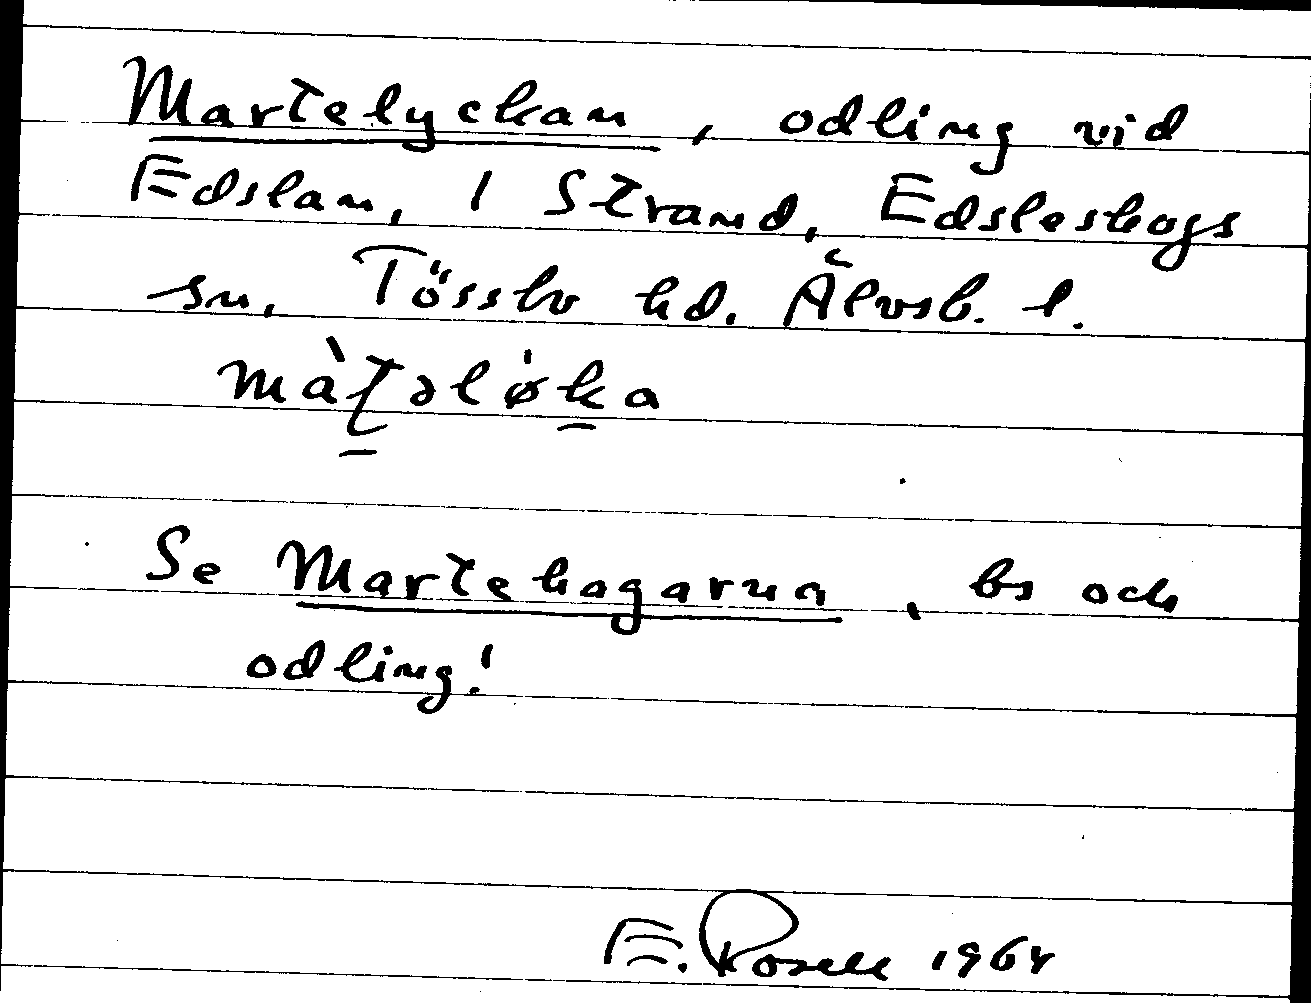 Martelyckan, odling vid
Edslan, 1 Strand, Edsleskogs
sn, Tössbo hd. Älvsb. l.
màʈəlø̀ka
Se Martehagarna, bs och
odling!
E. Rosell 1964